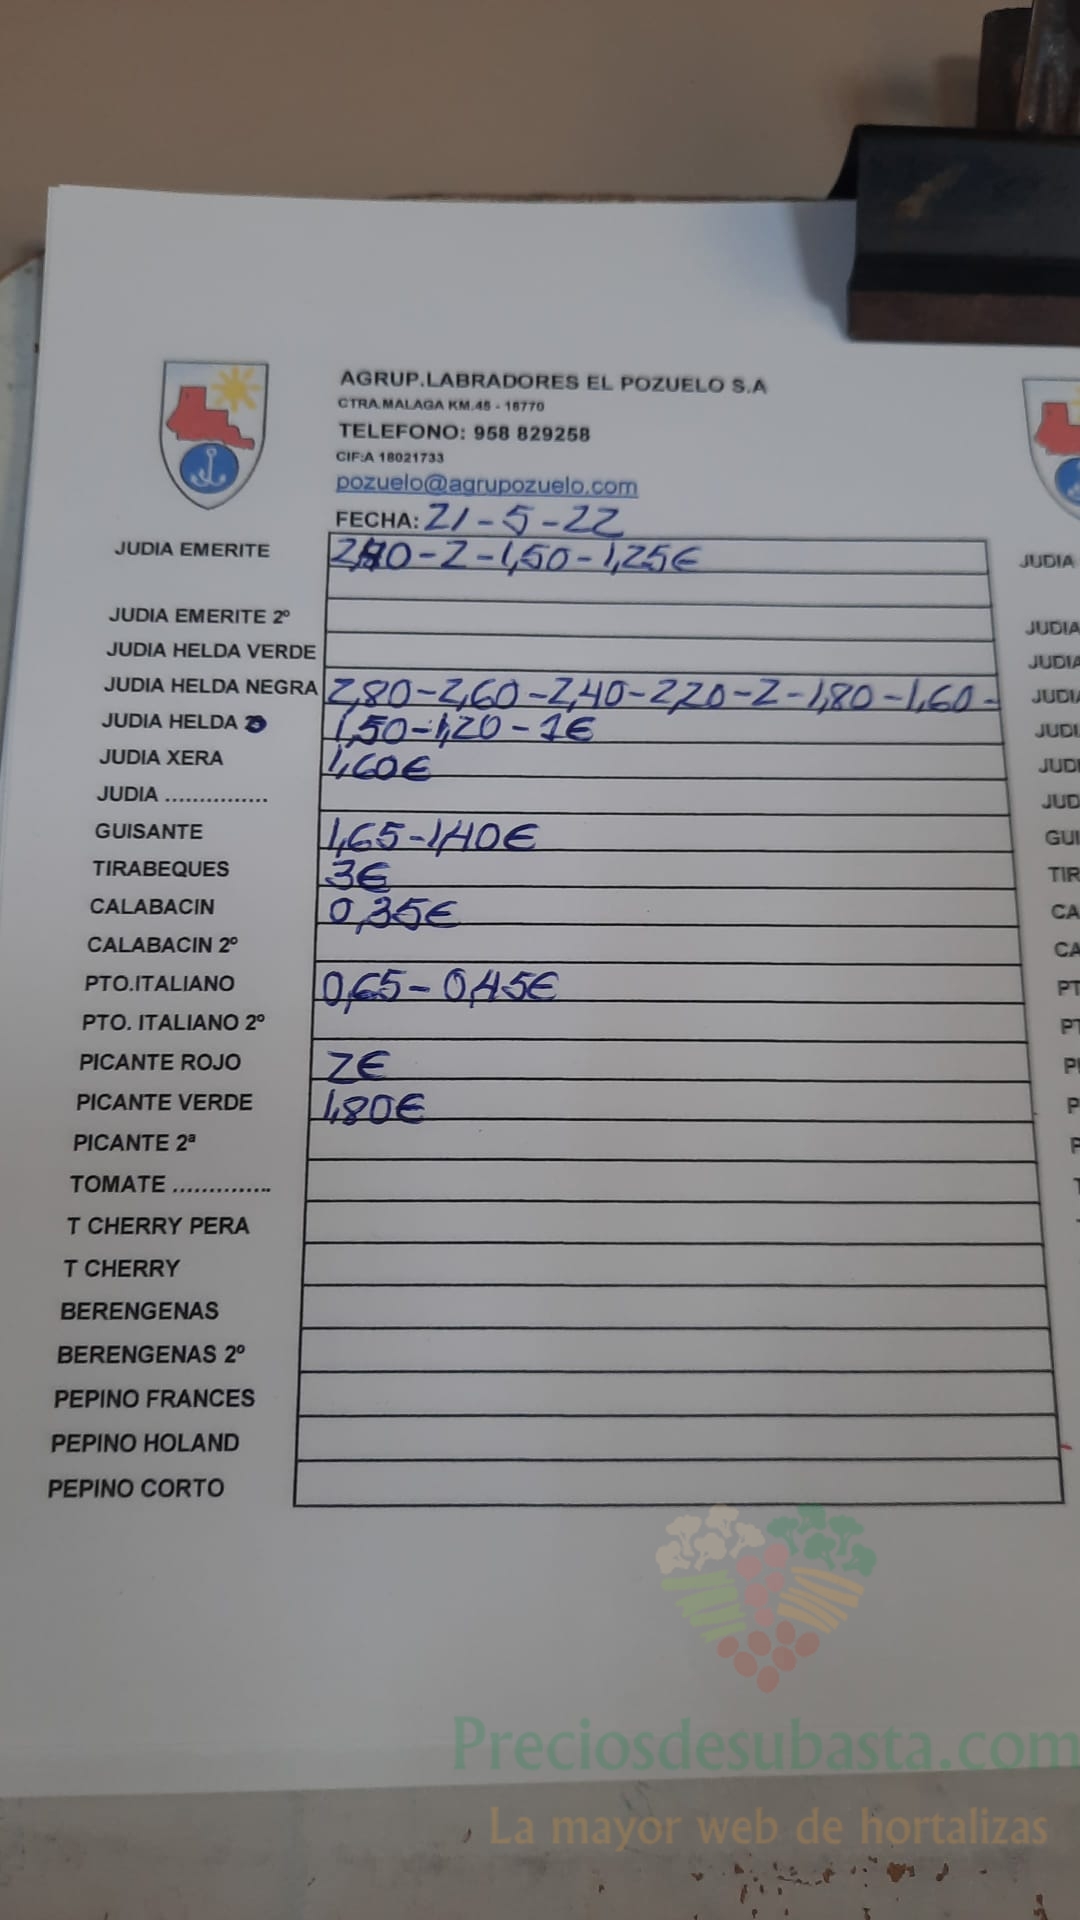 AGRUP.LABRADORES EL POZUELO S.A
CTRA.MALAGA KM.45 - 18770
TELEFONO: 958 829258
CIF:A 18021733
pozuelo@agrupozuelo.com
FECHA: 21-5-22
JUDIA EMERITE - 2 - 1,50 - 1,25€
JUDIA EMERITE 2º
JUDIA HELDA VERDE
JUDIA HELDA NEGRA 2,80 - 2,60 - 2,40 - 2,20 - 2 - 1,80 - 1,60 -
JUDIA HELDA 1,50 - 1,20 - 1€
JUDIA XERA 1,60€
JUDIA ...............
GUISANTE 1,65 - 1,40€
TIRABEQUES 3€
CALABACIN 0,35€
CALABACIN 2º
PTO.ITALIANO 0,65 - 0,45€
PTO. ITALIANO 2º
PICANTE ROJO 2€
PICANTE VERDE 1,80€
PICANTE 2ª
TOMATE ..............
T CHERRY PERA
T CHERRY
BERENGENAS
BERENGENAS 2º
PEPINO FRANCES
PEPINO HOLAND
PEPINO CORTO
JUDIA
JUDIA
JUDIA
JUDIA
JUDI
JUDI
JUD
GUI
TIR
CA
CA
PT
PT
Preciosdesubasta.com
La mayor web de hortalizas